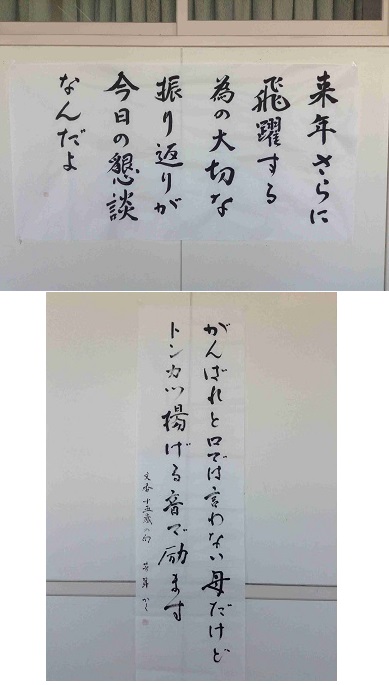 来年さらに
飛躍する
為の大切な
振り返りが
今日の懇談
なんだよ
がんばれと口では言わない母だけど
トンカツ揚げる音で励ます